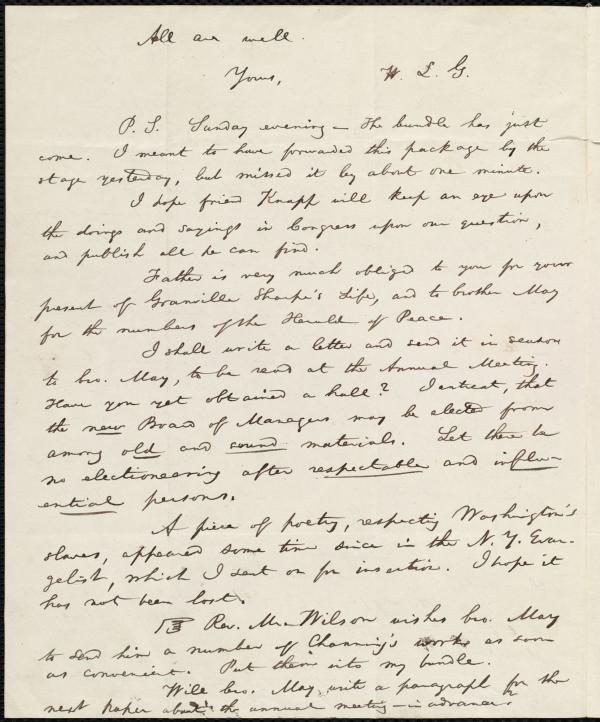 All are well.
Yours, W. L. G.
P. S. Sunday evening – The bundle has just
come. I meant to have forwarded this package by the
stage yesterday, but missed it by about one minute.
I hope friend Knapp will keep an eye upon
the doings and sayings in Congress upon our question,
and publish all he can find.
Father is very much obliged to you for your
present of Granville Sharpe's Life, and to brother May
for the numbers of the Herald of Peace.
I shall write a letter and send it in season
to bro. May, to be read at the Annual Meeting.
Have you yet obtained a hall? I entreat, that
the new Board of Managers may be elected from
among old and sound materials. Let there be
no electioneering after respectable and influ-
ential persons.
A piece of poetry, respecting Washington's
slaves, appeared some time since in the N. Y. Evan-
gelist, which I sent on for insertion. I hope it
has not been lost.
☞ Rev. Mr. Wilson wishes bro. May
to send him a number of Channing's works as soon
as convenient. Put them into my bundle.
Will bro. May write a paragraph for the
next paper about the annual meeting – in advance?